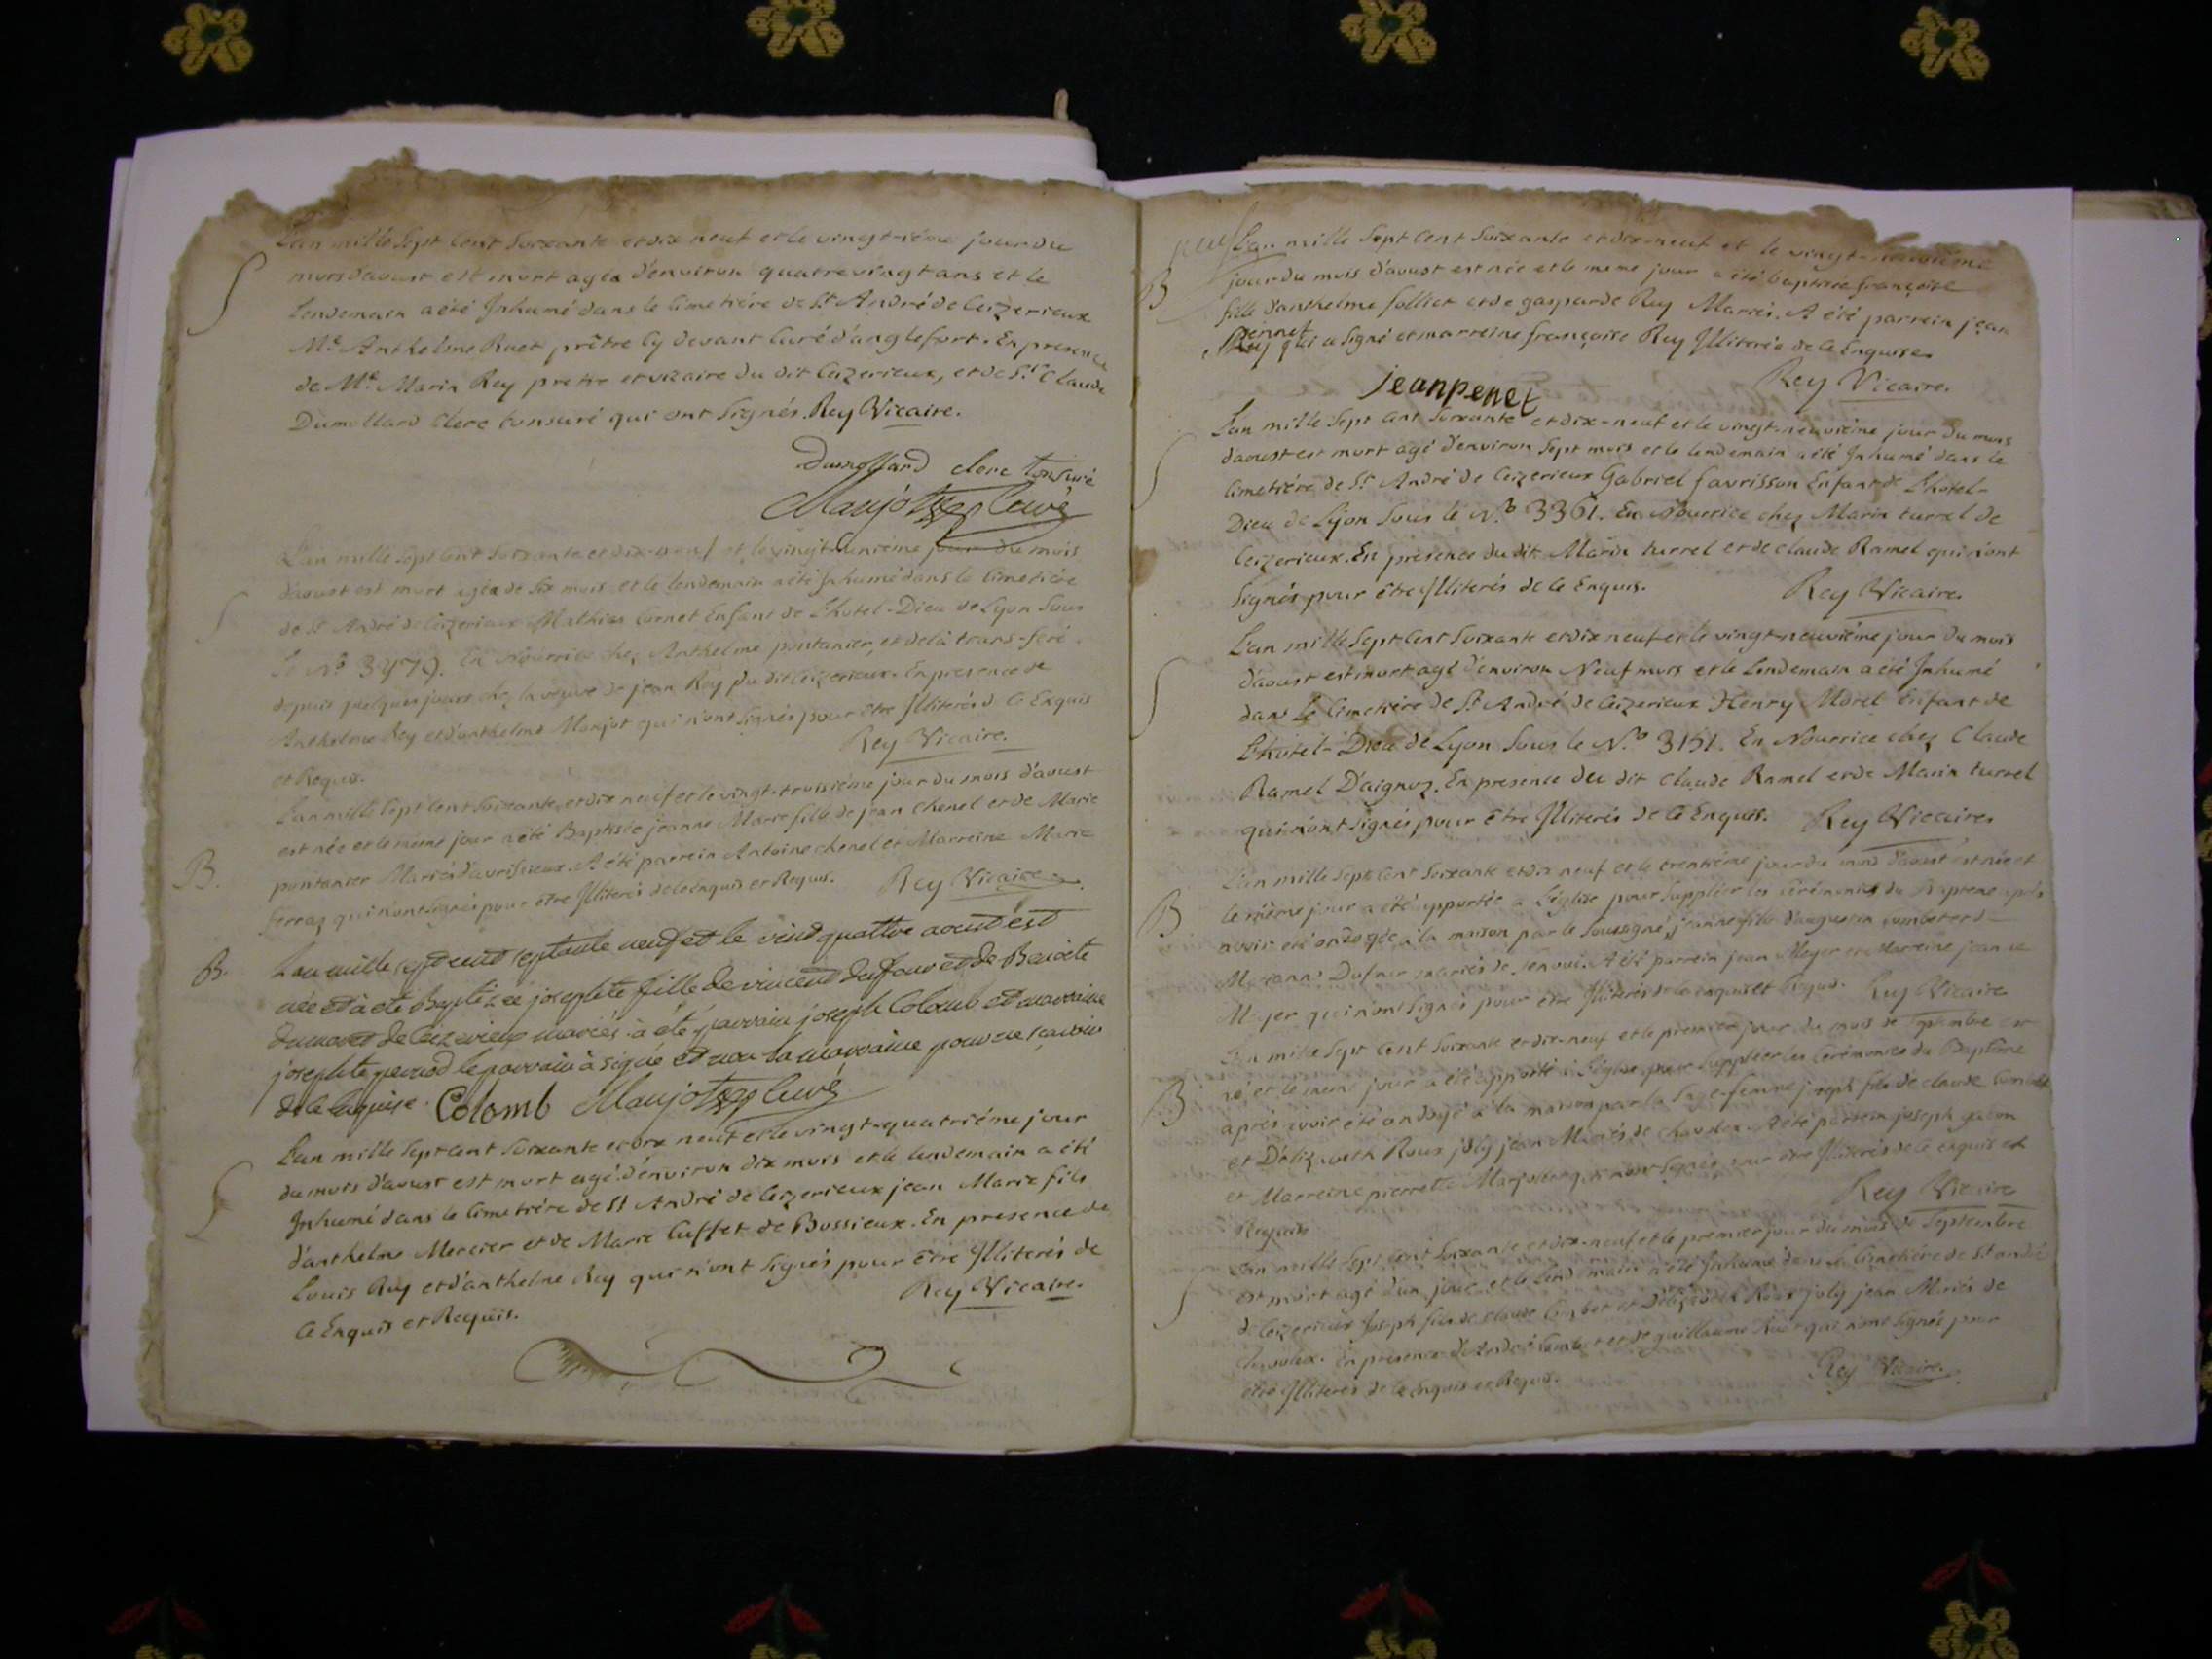 L'an mille Sept Cent Soixante et dix neuf et le vingt-ième jour du
S
mois d'aoust est mort agéa d'environ quatre vingt ans et le
Lendemain a été Inhumé dans le Cimetiére de St André de Ceizerieux
Me Anthelme Ruet prêtre cy devant Curé d'anglefort. En presence
de Me Marin Rey pretre et vicaire du dit Ceizerieux, et de Sr Claude
Dumollard Clerc tonsuré qui ont Signés. Rey Vicaire.
Dumollard clerc Tonsuré
Maujot Curé
L'an mille Sept Cent Soixante et dix-neuf et le vingt-unième jour du mois
S
d'aoust est mort agéa de Six mois et le lendemain a été Inhumé dans le Cimetiére
de St André de Ceizerieux Mathias Cornet Enfant de L'hotel-Dieu de Lyon Sous
Le No En Nourrice chez Anthelme pontanier, et delà trans-feré
depuis quelques jours chez la veuve de jean Rey du dit Ceizerieux. En presence de
Anthelme Rey et d'anthelme Monjot qui n'ont Signés pour être Illiterés de Ce Enquis
et Requis. Rey Vicaire.
L'an mille Sept Cent Soixante et dix neuf et le vingt-troisième jour du mois d'aoust
est née et le même jour a été Baptisée jeanne Marie fille de jean Chenel et de Marie
B.
pontanier Mariés d'avrissieux. A été parrein Antoine chenel et Marreine Marie
Ferraz qui n'ont Signés pour être Illiterés de Ce Enquis et Requis. Rey Vicaire.
B.
L'an mille sept cent septante neuf et le vint quattre aoust est
née et à été Baptizée josephte fille de vincent dufour et de Benoite
dumaret de Ceizerieux mariés à été parrain joseph Colomb et marraine
josephte le parrain à signé et non la marraine pour ne scavoir
de ce enquise. Colomb Maujot Curé
L'an mille Sept cent Soixante et dix neuf et le vingt-quatriéme jour
S
du mois d'aoust est mort agé d'environ dix mois et le lendemain a été
Inhumé dans le Cimetiére de St André de Ceizerieux jean Marie fils
d'anthelme Mercier et de Marie Cuffet de Bossieux. En presence de
Louis Rey et d'anthelme Rey qui n'ont Signés pour être Illiterés de
Ce Enquis et Requis. Rey Vicaire.
L'an mille Sept Cent Soixante et dix-neuf et le vingt-neuvième
B
jour du mois d'aoust est née et le meme jour a été baptisée françoise
fille d'anthelme folliet et de gasparde Rey Mariés. A été parrein jean
pennet
Rey qui a Signé et marreine françoise Rey Illiterée de Ce Enquise.
Rey Vicaire.
jean penet
L'an mille Sept Cent Soixante et dix-neuf et le vingt-neuvième jour du mois
S
d'aoust est mort agé d'environ Sept mois et le lendemain a été Inhumé dans le
Cimetiére de St André de Ceizerieux Gabriel favrisson Enfant de L'hotel-
Dieu de Lyon Sous le No 3361. En Nourrice chez Marin turrel de
Ceizerieux. En presence du dit Marin turrel et de claude Ramel qui n'ont
Signés pour être Illiterés de Ce Enquis. Rey Vicaire.
L'an mille Sept Cent Soixante et dix neuf et le vingt-neuviéme jour du mois
S
d'aoust est mort agé d'environ Neuf mois et le Lendemain a été Inhumé
dans Le Cimetiére de St André de Ceizerieux Henry Morel Enfant de
L'hotel-Dieu de Lyon Sous le No 3151. En Nourrice chez Claude
Ramel D'aignoz. En presence du dit Claude Ramel et de Marin turrel
qui n'ont Signés pour être Illiterés de Ce Enquis. Rey Vicaire.
L'an mille Sept Cent Soixante et dix neuf et le trentième jour du mois d'aoust est née et
B
le même jour a été apportée a L'église pour Supplier les Cérémonies du Bapteme après
avoir été ondoyée à la maison par le Soussigné, jeanne fille d'augustin
Marianne mariés de A été parrein jean Meyer et Marreine jeanne
Meyer qui n'ont Signés pour être Illiterés de Ce enquis et Requis. Rey Vicaire
L'an mille Sept Cent Soixante et dix-neuf et le premier jour du mois de Septembre est
né et le meme jour a été apporté à l'église pour Supplier les Cérémonies du Baptême
B
après avoir été ondoyé à la maison par la Sage-femme joseph fils de claude
et D'élizabeth Roux joly jean Mariés de A été parrein joseph
et Marreine pierrette qui n'ont Signés pour être Illiterés de Ce enquis et
Requis Rey Vicaire
L'an mille Sept Cent Soixante et dix-neuf et le premier jour du mois de Septembre
S
est mort agé d'un jour et le Lendemain a été Inhumé dans le Cimetiére de St andré
de Ceizerieux Joseph fils de claude et D'élizabeth Roux joly jean Mariés de
En presence d'André et de guillaume Ruet qui n'ont Signés pour
être Illiterés de Ce Enquis et Requis. Rey Vicaire.